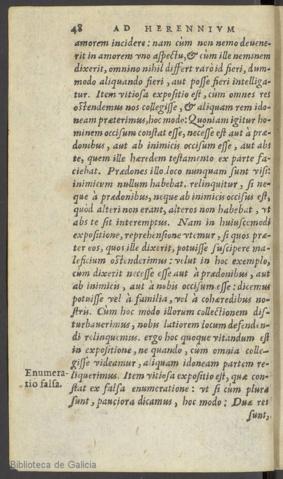 48 AD HERENNIVM
amorem incidere: nam cùm non nemo deuene-
rit in amorem vno aspectu, & cùm ille neminem
dixerit, omnino nihil differt rarò id fieri, dum-
modo aliquando fieri, aut posse fieri intelliga-
tur. Item vitiosa expositio est, cùm omnes res
ostendemus nos collegisse, & aliquam rem ido-
neam præterimus, hoc modo: Quoniam igitur ho-
minem occisum constat esse, necesse est aut à præ-
donibus, aut ab inimicis occisum esse, aut abs
te, quem ille hæredem testamento ex parte fa-
ciebat. Prædones illo loco nunquam sunt visi:
inimicum nullum habebat. relinquitur, si ne-
que à prædonibus, neque ab inimicis occisus est,
quòd alteri non erant, alteros non habebat, vt
abs te sit interemptus. Nam in huiuscemodi
expositione, reprehensione vtemur, si quos præ-
ter eos, quos ille dixerit, potuisse suscipere ma-
leficium ostenderimus: velut in hoc exemplo,
cùm dixerit necesse esse aut à prædonibus, aut
ab inimicis, aut à nobis occisum esse: dicemus
potuisse vel à familia, vel à cohæredibus no-
stris. Cùm hoc modo illorum collectionem dis-
turbauerimus, nobis latiorem locum defenden-
di relinquemus. ergo hoc quoque vitandum est
in expositione, ne quando, cùm omnia colle-
gisse videamur, aliquam idoneam partem re-
Enumera-
tio falsa.
liquerimus. Item vitiosa expositio est, quæ con-
stat ex falsa enumeratione: vt si cùm plura
sunt, pauciora dicamus, hoc modo: Duæ res
sunt,
Biblioteca de Galicia